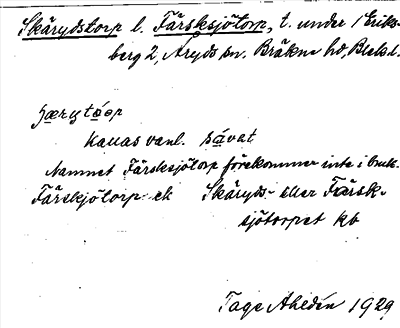 Skärydstorp l. Färsksjötorp, t. under 1 Eriks-
berg 2, Åryds sn. Bräkne hd, Blek.
kallas vanl. såvat
Namnet Färsksjötorp förekommer inte i bruk.
Färskjötorp ek Skäryds- eller Färsk-
sjötorpet kb
Tage Ahldén 1929